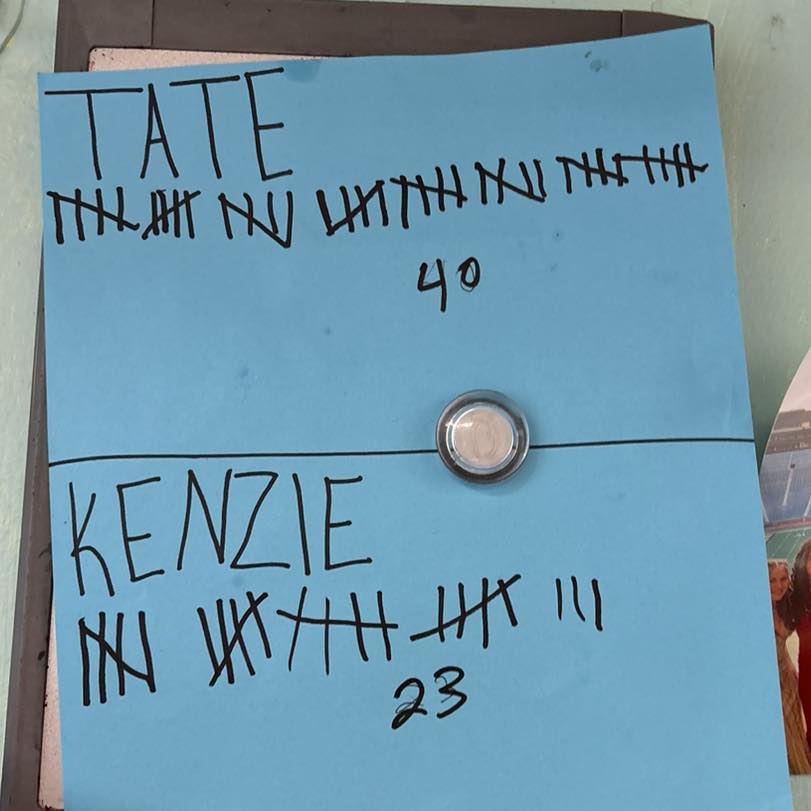 TATE
40
KENZIE
23